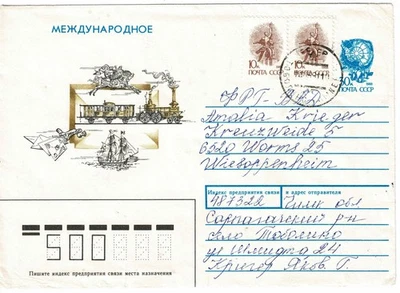 МЕЖДУНАРОДНОЕ
10к ПОЧТА СССР
10к ПОЧТА СССР
30к ПОЧТА СССР
ФРГ-BRD
Amalia Krieger
Kreuzweide 5
6520 Worms 25
Wiesoppenheim
Индекс предприятия связи и адрес отправителя
487322 обл
р-н
село
ул 24
Яков. Г.
500
Пишите индекс предприятия связи места назначения